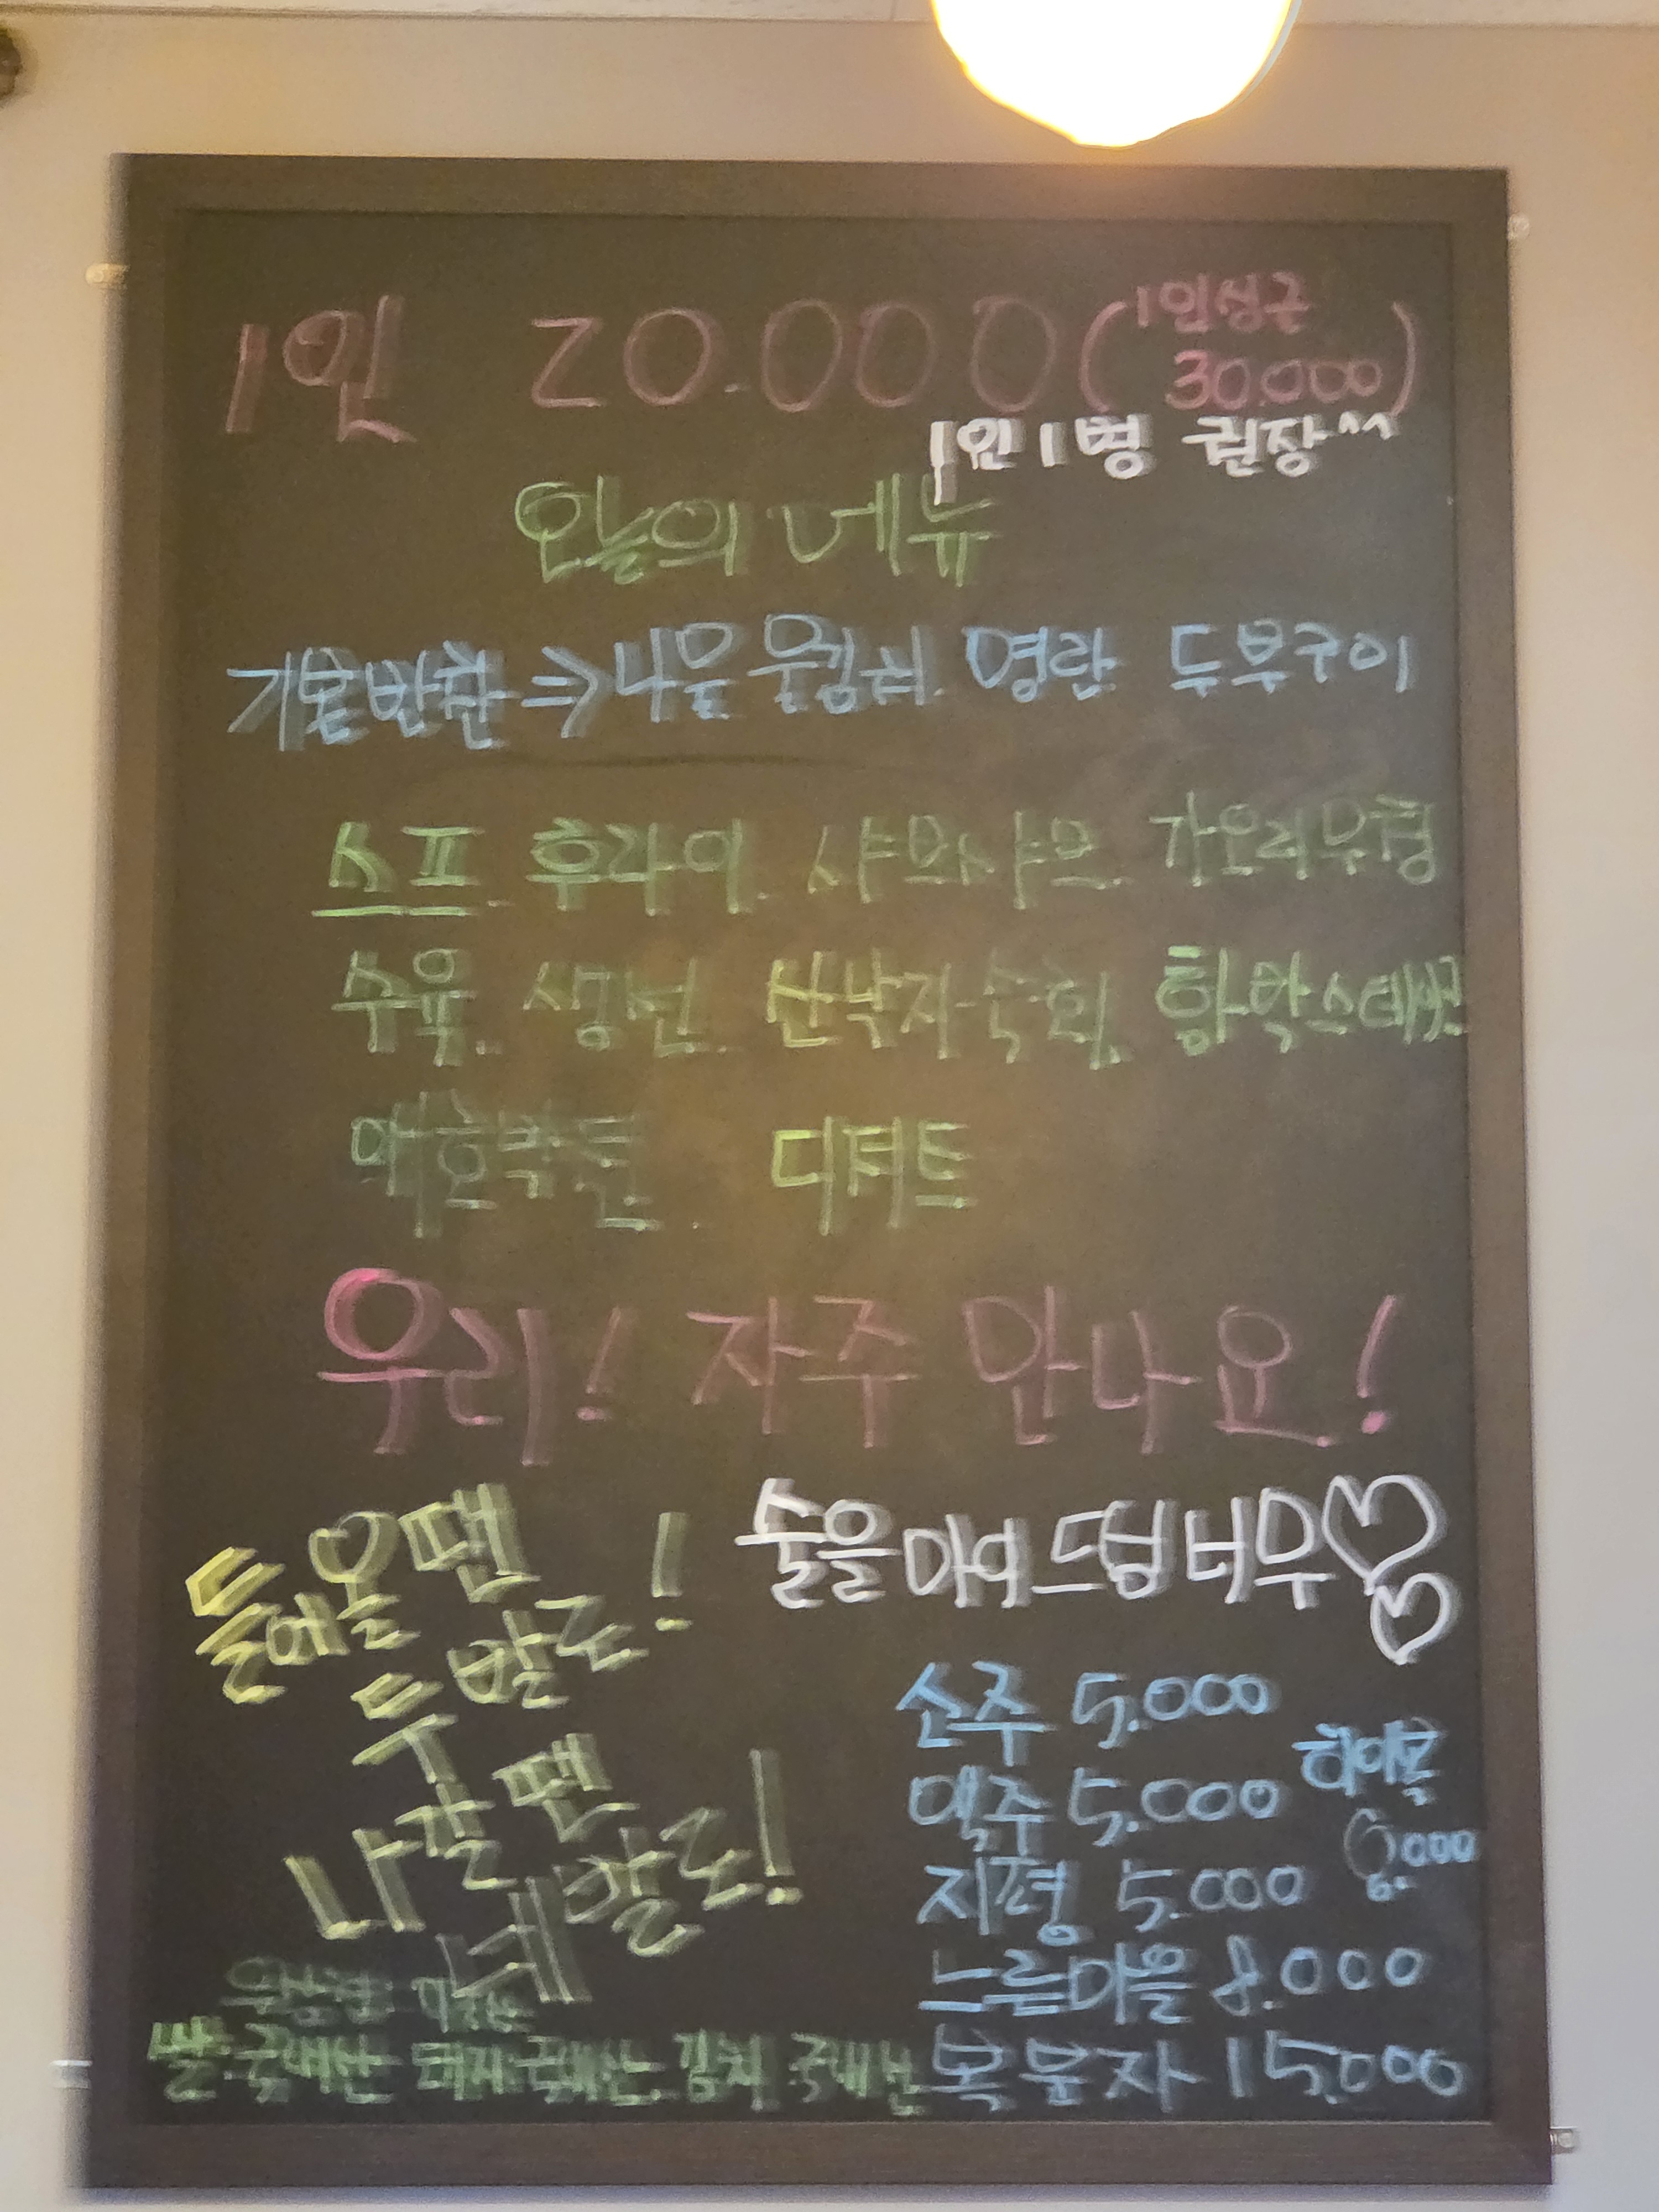 1인 20.000 (1인성근 30.000)
1인 1병 권장^^
오늘의 메뉴
기본반찬 ⇒ 나물 물김치. 명란 두부구이
스프. 후라이. 샤브샤브. 가오리무침
수육. 생선. 산낙지숙회. 함박스테이크
애호박전. 디져트
우리! 자주 만나요!
들어올땐
두발로!
나갈땐
네발로!
술을 마셔 드림 너무♡♡
소주 5.000
맥주 5.000
하이볼 6.000
지평 5.000
느린마을 8.000
복분자 15.000
우삼겹 미국산
쌀:국내산 돼지:국내산. 김치 국내산